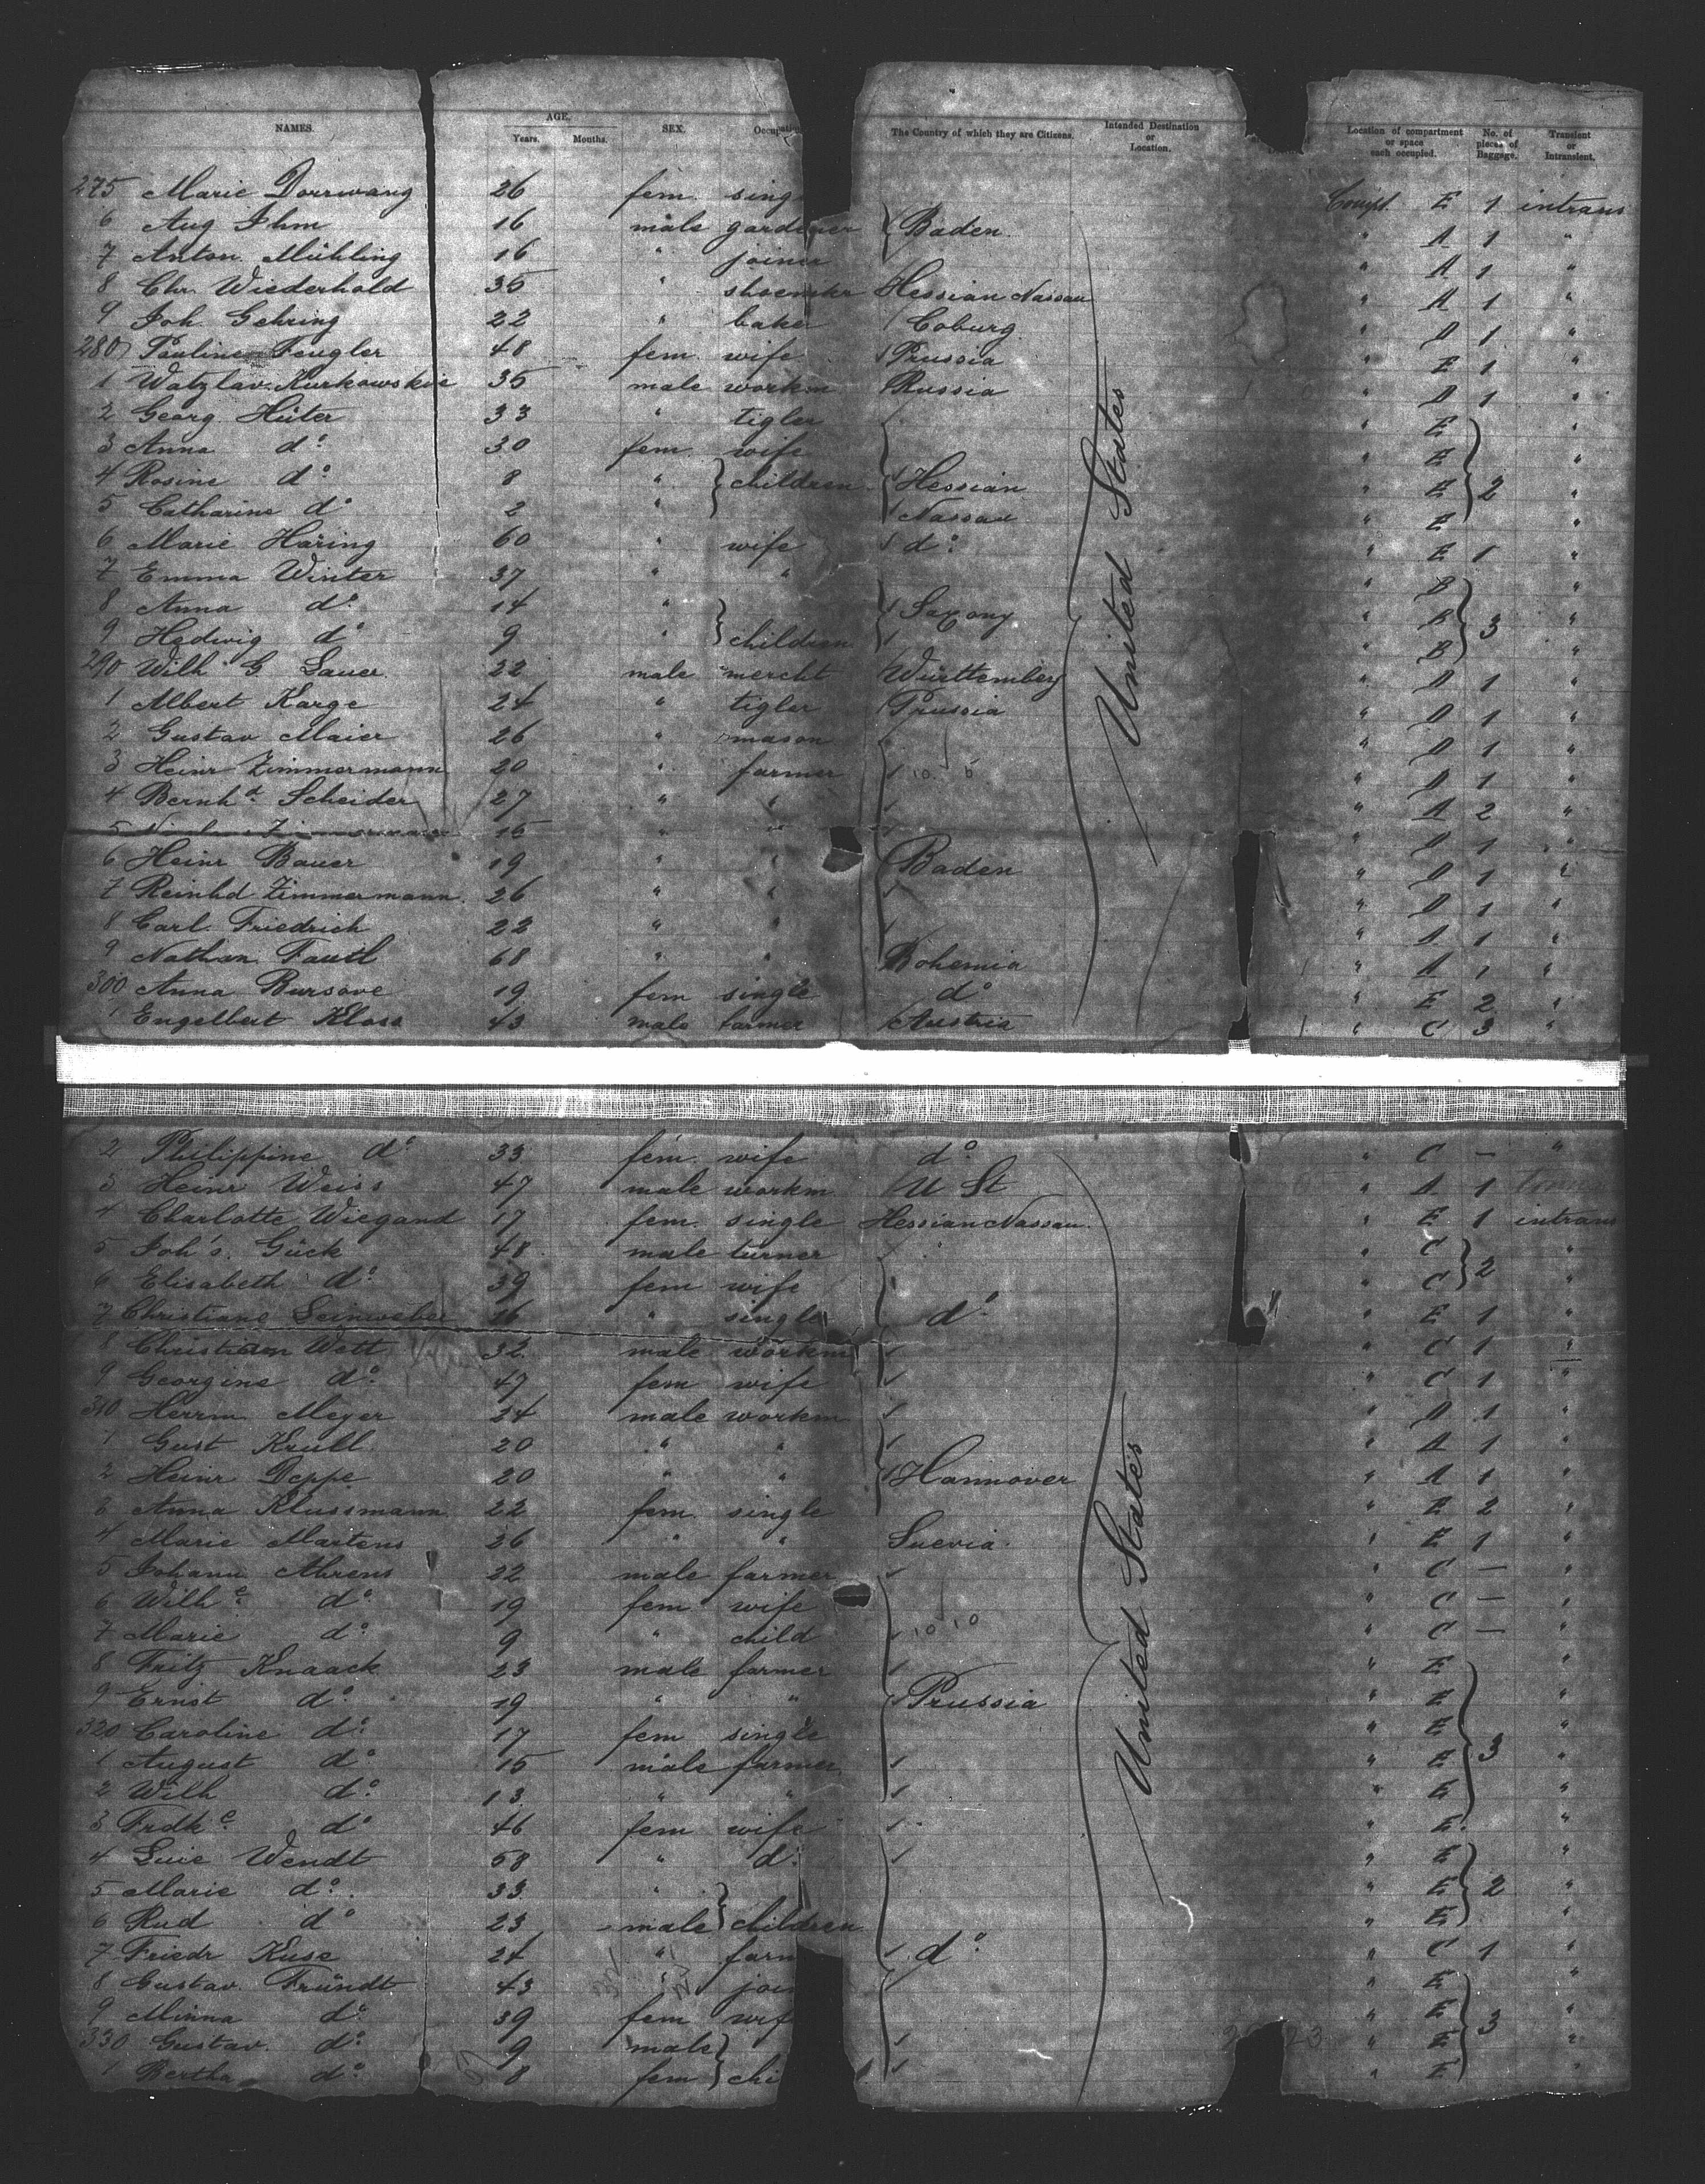 NAMES. AGE. Years. Months. SEX. Occupati The Country of which they are Citizens. Intended Destination or Location. Location of compartment or space each occupied. No. of pieces of Baggage. Transient or Intransient.
275 Marie Dorrwang 26 fem. sing Compt. E 1 intrans
6 Aug Ihm 16 male gardener Baden " A 1 "
7 Anton Mühling 16 " joiner " A 1 "
8 Chr. Wiederhold 35 " shoemkr Hessian Nassau " A 1 "
9 Joh. Gehring 22 " baker Coburg " A 1 "
280 Pauline Feugler 48 fem. wife Prussia " E 1 "
1 Watzlav Kurkowskie 35 male workm Russia " A 1 "
2 Georg Hüter 33 " tigler " E "
3 Anna do 30 fem. wife " E "
4 Rosine do 8 " children Hessian " E 2 "
5 Catharine do 2 " Nassau " E "
6 Marie Häring 60 " wife do " E 1 "
7 Emma Winter 37 " " " B "
8 Anna do 14 " Saxony " B 3 "
9 Hedwig do 9 " children " B "
290 Wilh G. Lauer 22 male mercht Württemberg " A 1 "
1 Albert Karge 24 " tigler Prussia " A 1 "
2 Gustav Maier 26 " mason " A 1 "
3 Heinr Zimmermann 20 " farmer " A 1 "
4 Bernhd. Scheider 27 " " " A 2 "
5 Zimmermann 15 " " " A 1 "
6 Heinr Bauer 19 " " Baden " A 1 "
7 Reinhd Zimmermann 26 " " " A 1 "
8 Carl Friedrich 22 " " " A 1 "
9 Nathan Fautl 68 " " Bohemia " A 1 "
300 Anna Bursove 19 fem single do " E 2 "
1 Engelbert Kloss 43 male farmer Austria " C 3 "
United States
2 Philippine do 33 fem. wife do " C — "
3 Heinr Weiss 47 male workm U St " A 1 trans
4 Charlotte Wiegand 17 fem. single Hessian Nassau " E 1 intrans
5 Joh's. Gück 48 male turner " C 2 "
6 Elisabeth do 39 fem wife " C "
7 Christiane Leinweber 16 " single do " E 1 "
8 Christian Wett 32 male workm " C 1 "
9 Georgine do 47 fem wife " C 1 "
310 Herrm Meyer 24 male workm " A 1 "
1 Gust Krull 20 " " " A 1 "
2 Heinr Deppe 20 " " Hannover " A 1 "
3 Anna Klussmann 22 fem. single " E 2 "
4 Marie Martens 26 " " Suevia " E 1 "
5 Johann Ahrens 22 male farmer " C — "
6 Wilhe. do 19 fem wife " C — "
7 Marie do 9 " child " C — "
8 Fritz Knaack 23 male farmer " E "
9 Ernst do 19 " " Prussia " E "
320 Caroline do 17 fem single " E "
1 August do 15 male farmer " E 3 "
2 Wilh do 13 " " " E "
3 Frdke. do 46 fem wife " E "
4 Luie Wendt 58 " do " E "
5 Marie do 33 " " E 2 "
6 Rud do 23 male children " E "
7 Friedr Kuse 24 " farm do " C 1 "
8 Gustav Fründt 43 " joi " E "
9 Minna do 39 fem wif " E 3 "
330 Gustav do 9 male " E "
1 Bertha do 8 fem chi " E "
United States